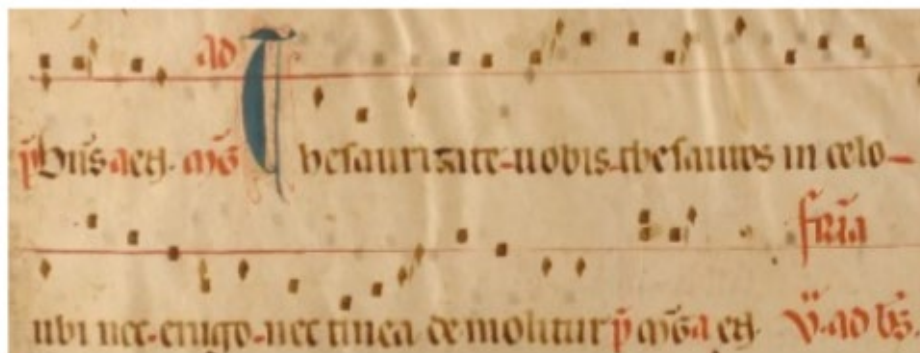 ad
p̄ Bn̄s a eꝗ. mḡ Thesaurizate-uobis-thesauros in celo-
fr̄ia
ubi nec-erugo-nec tinea demolitur p̄ mḡ a eꝗ. V̈. ad bn̄s